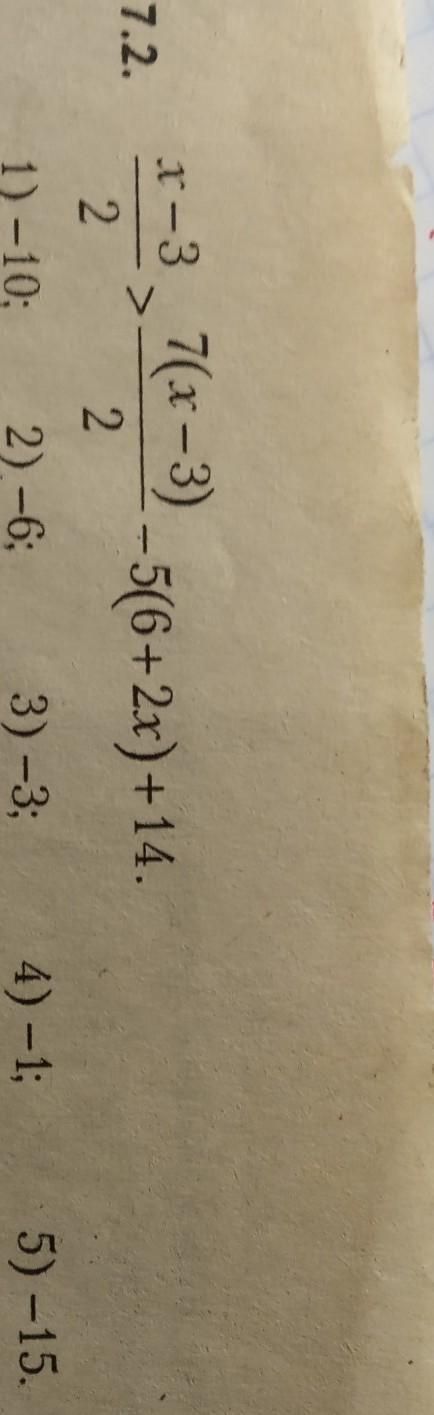 7.2. (x – 3)/2 > 7(x – 3)/2 – 5(6 + 2x) + 14.
1) –10; 2) –6; 3) –3; 4) –1; 5) –15.